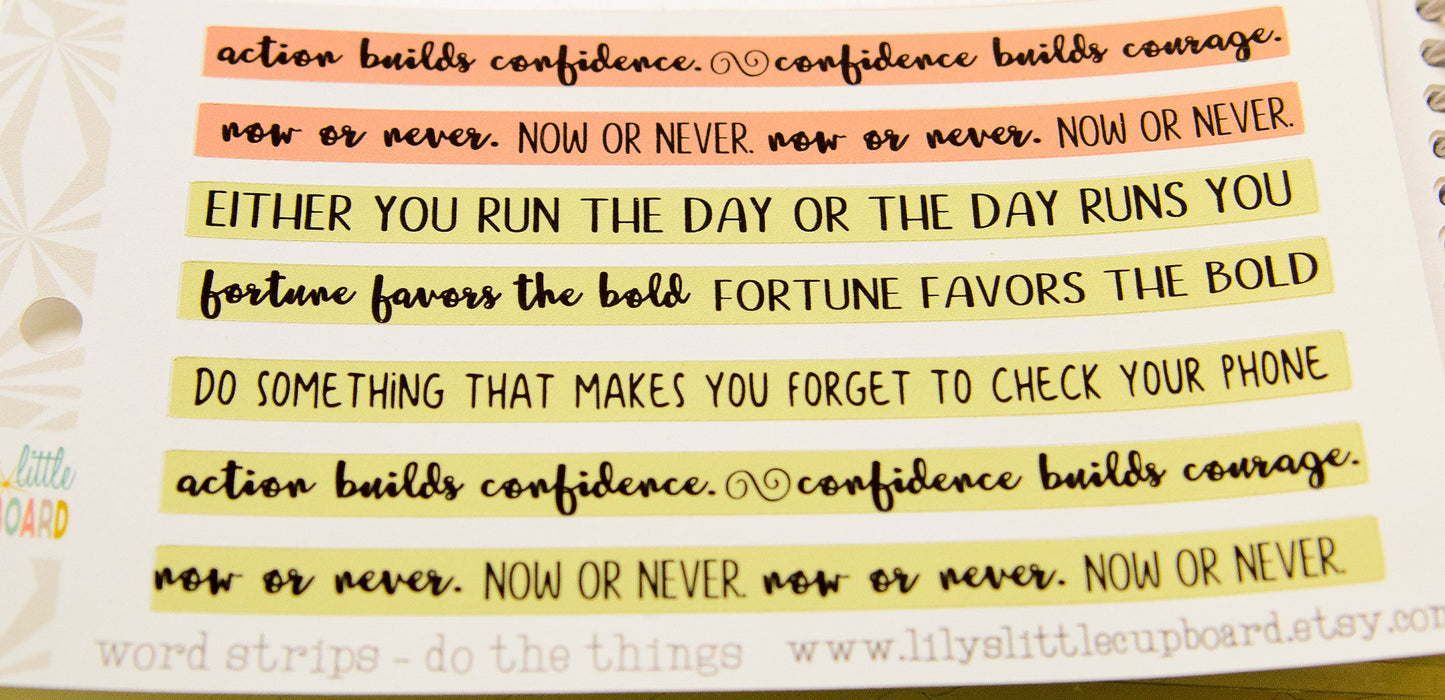 action builds confidence. confidence builds courage.
now or never. NOW OR NEVER. now or never. NOW OR NEVER.
EITHER YOU RUN THE DAY OR THE DAY RUNS YOU
fortune favors the bold FORTUNE FAVORS THE BOLD
DO SOMETHING THAT MAKES YOU FORGET TO CHECK YOUR PHONE
action builds confidence. confidence builds courage.
little
OARD
now or never. NOW OR NEVER. now or never. NOW OR NEVER.
word strips - do the things www.lilyslittlecupboard.etsy.com